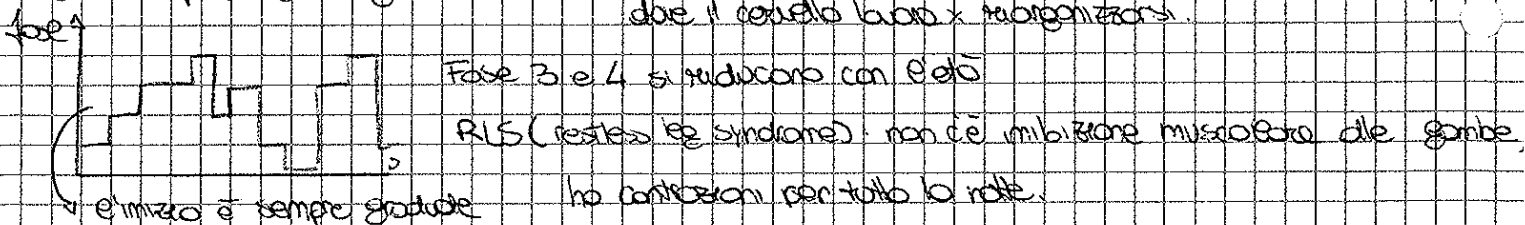 dove il cervello lavora x riorganizzarsi.
fase
Fase 3 e 4 si riducono con l'età
RLS (restless leg syndrome) non c'è inibizione muscolare alle gambe,
ho contrazioni per tutta la notte.
l'inizio è sempre graduale